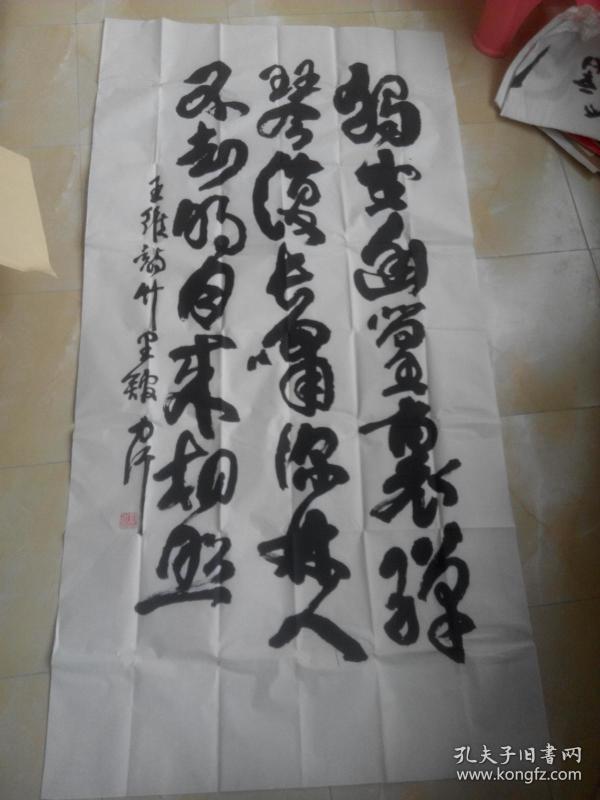 獨坐幽篁裏彈
琴復长嘯深林人
不知明月来相照
王維詩竹里館
孔夫子旧书网
www.kongfz.com